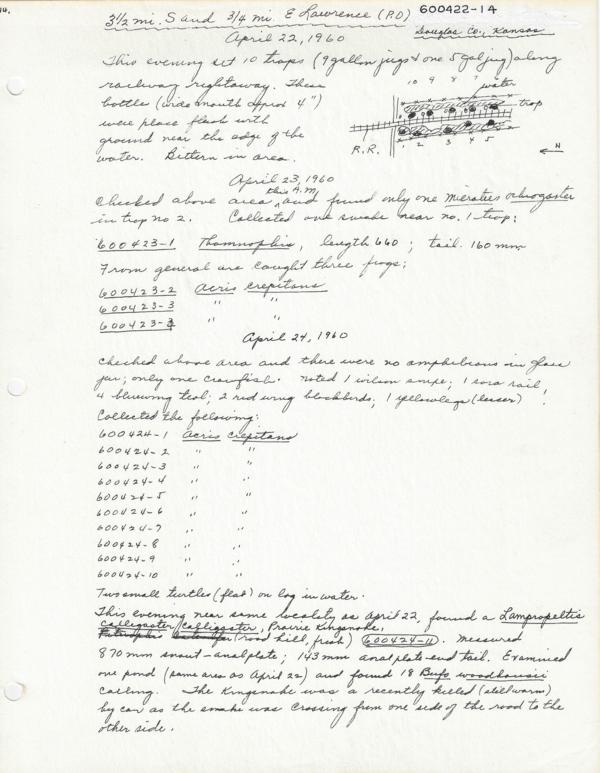 3 1/2 mi. S and 3/4 mi. E Lawrence (P.O.) 600422-14
April 22, 1960 Douglas Co., Kansas
This evening set 10 traps (9 gallon jugs & one 5 gal jug) along
railway rightaway. These
bottles (wide mouth aprox 4")
were place flush with
ground near the edge of the
water. Bittern in area.
10 9 8 7 6
water
trap
1 2 3 4 5
R.R.
N
April 23, 1960
this A.M.
Checked above area and found only one Microtus ochrogaster
in trap no 2. Collected one snake near no. 1 trap:
600423-1 Thamnophis, length 660; tail 160 mm
From general are caught three frogs:
600423-2 Acris crepitans
600423-3 " "
600423-3 " "
April 24, 1960
Checked above area and there were no amphibians in glass
jar; only one crawfish. Noted 1 wilson snipe; 1 sora rail;
4 bluewing teal; 2 red wing blackbirds; 1 yellowlegs (lesser)
Collected the following:
600424-1 Acris crepitans
600424-2 " "
600424-3 " "
600424-4 " "
600424-5 " "
600424-6 " "
600424-7 " "
600424-8 " "
600424-9 " "
600424-10 " "
Two small turtles (flat) on log in water.
This evening near same locality as April 22, found a Lampropeltis
calligaster calligaster, Prairie Kingsnake,
(road kill, fresh) 600424-11. Measured
870 mm snout-anal plate; 143 mm anal plate-end tail. Examined
one pond (same area as April 22) and found 18 Bufo woodhousii
calling. The Kingsnake was a recently killed (still warm)
by car as the snake was crossing from one side of the road to the
other side.